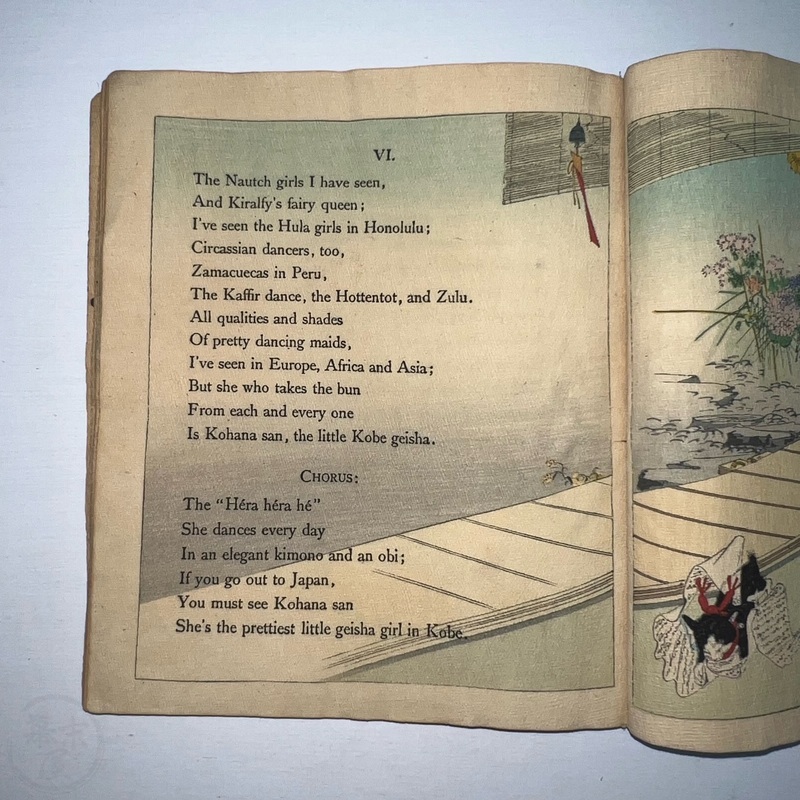 VI.
The Nautch girls I have seen,
And Kiralfy's fairy queen;
I've seen the Hula girls in Honolulu;
Circassian dancers, too,
Zamacuecas in Peru,
The Kaffir dance, the Hottentot, and Zulu.
All qualities and shades
Of pretty dancing maids,
I've seen in Europe, Africa and Asia;
But she who takes the bun
From each and every one
Is Kohana san, the little Kobe geisha.
CHORUS:
The "Héra héra hé"
She dances every day
In an elegant kimono and an obi;
If you go out to Japan,
You must see Kohana san
She's the prettiest little geisha girl in Kobe.